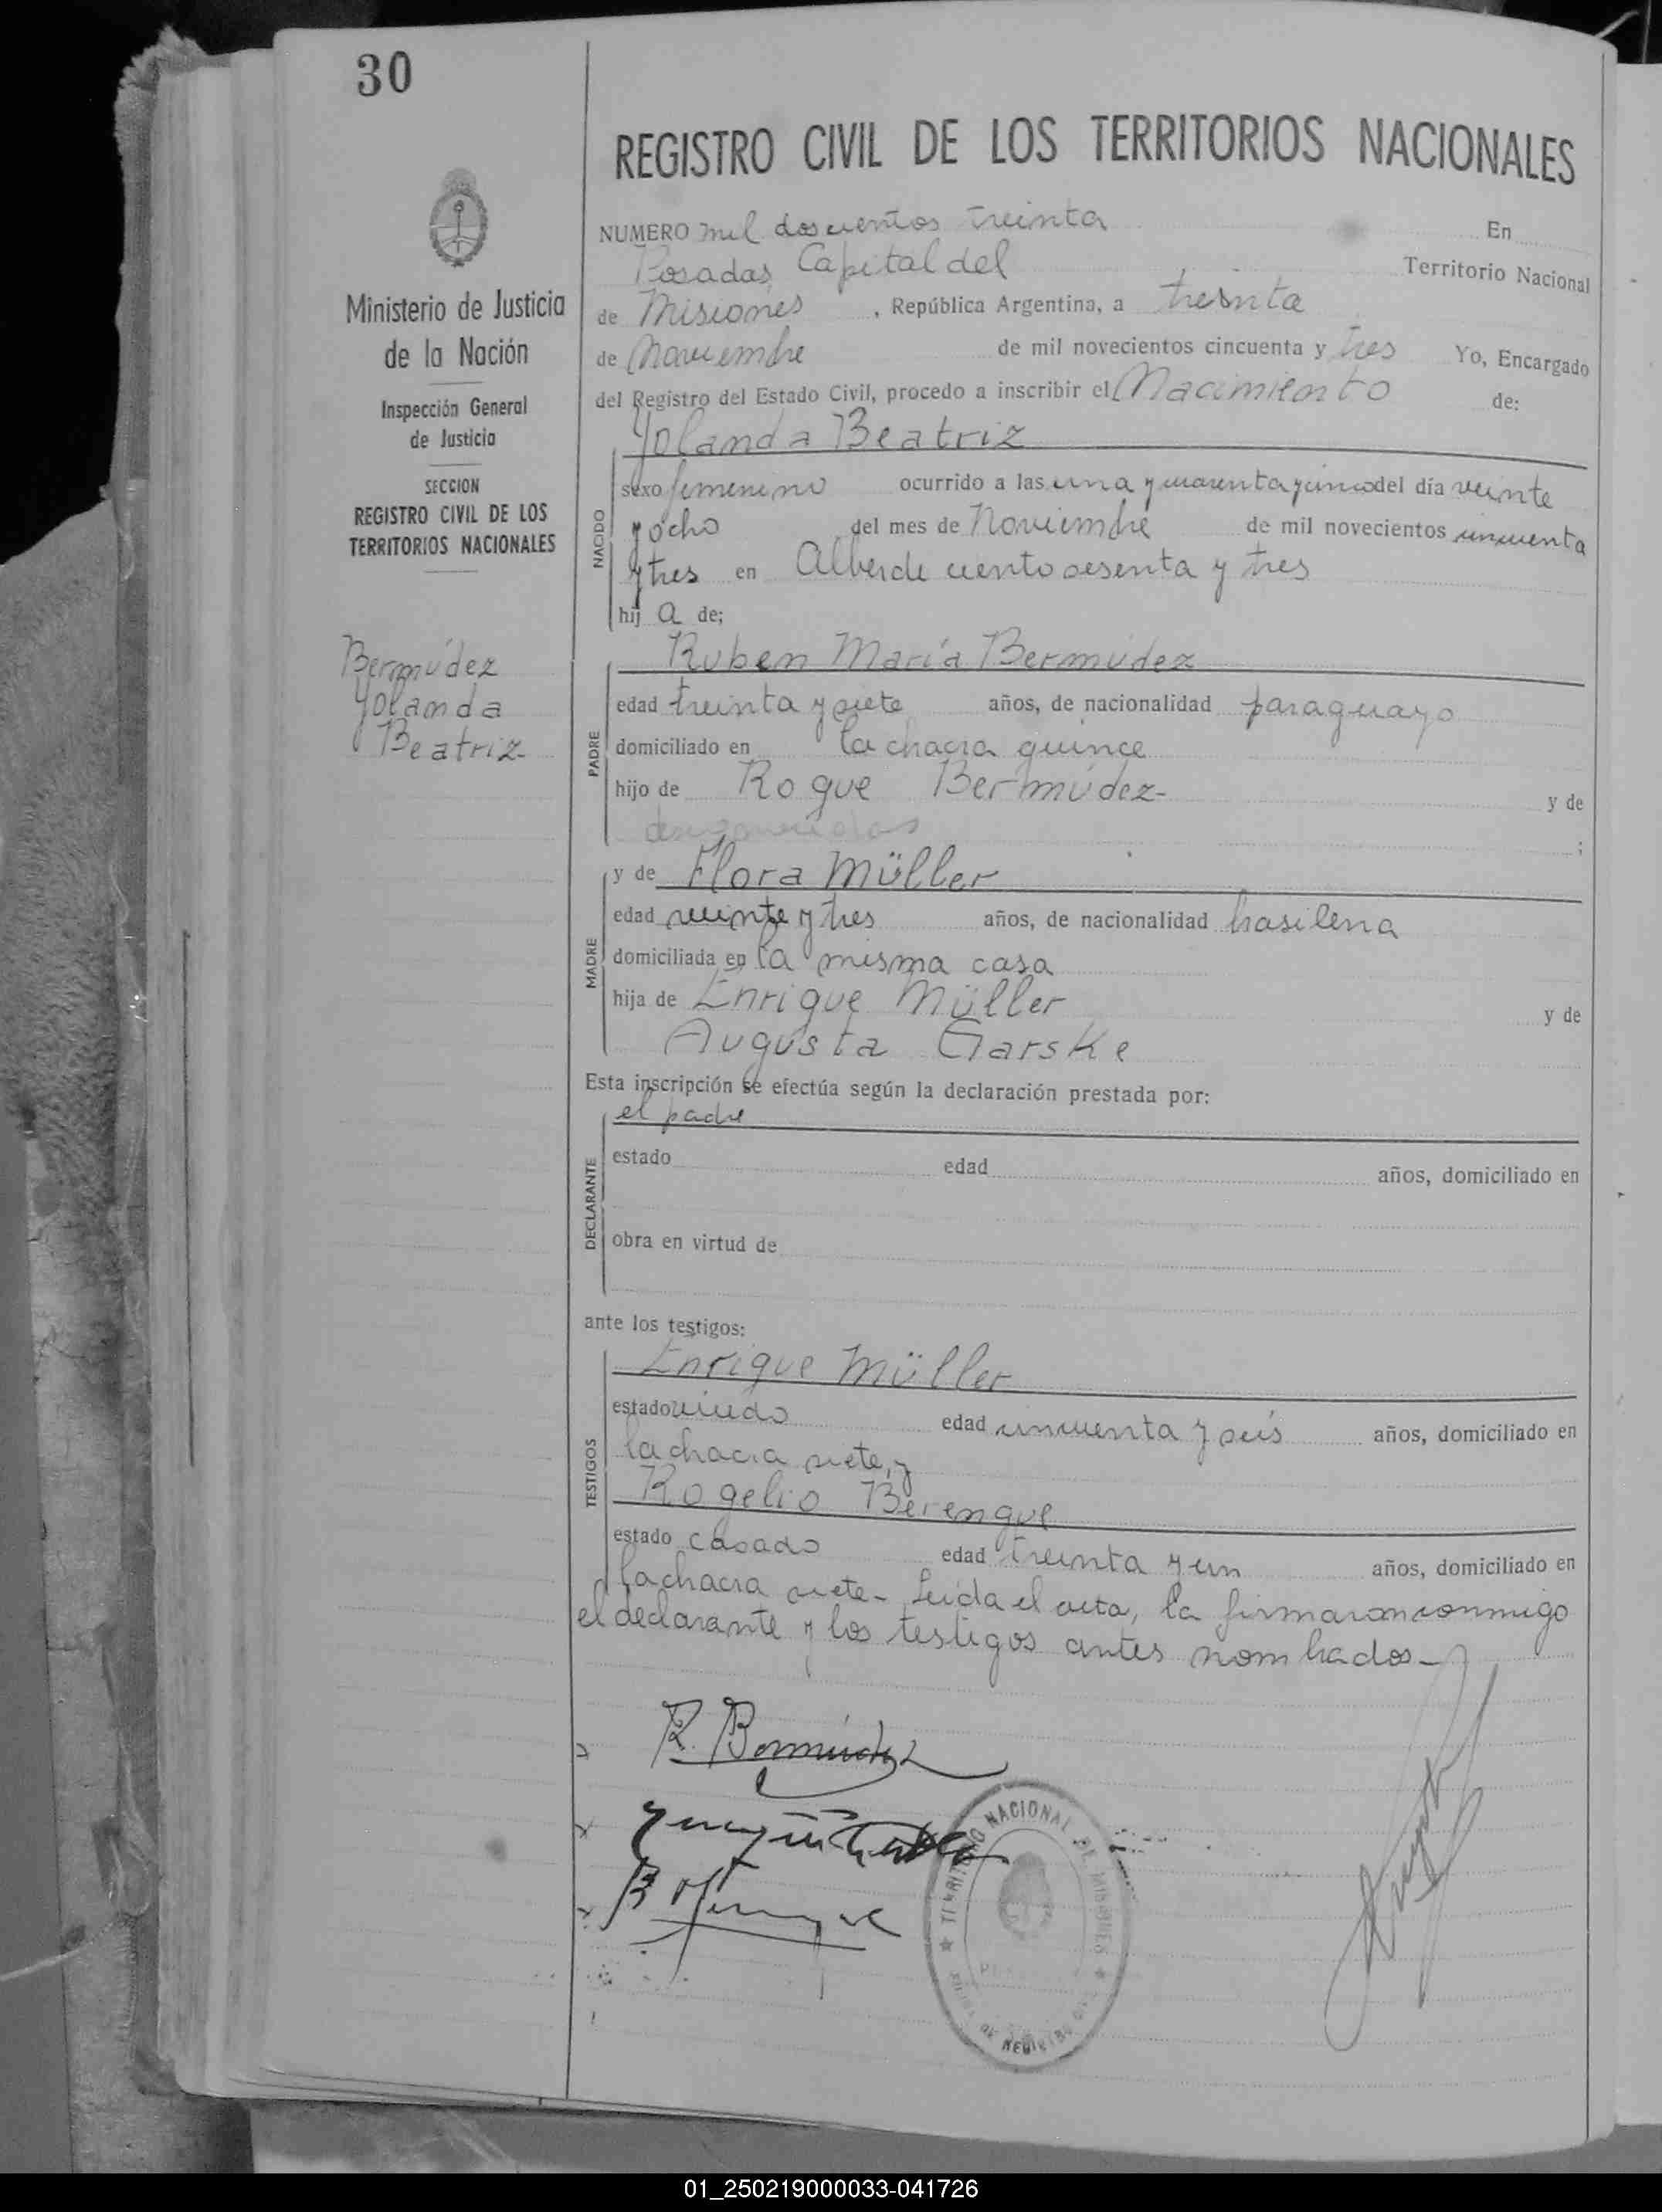 30
REGISTRO CIVIL DE LOS TERRITORIOS NACIONALES
Ministerio de Justicia
de la Nación
Inspección General
de Justicia
SECCION
REGISTRO CIVIL DE LOS
TERRITORIOS NACIONALES
Bermúdez
Yolanda
Beatriz-
NUMERO mil doscientos treinta En
Posadas, Capital del Territorio Nacional
de Misiones, República Argentina, a treinta
de Noviembre de mil novecientos cincuenta y tres Yo, Encargado
del Registro del Estado Civil, procedo a inscribir el Nacimiento de:
NACIDO
Yolanda Beatriz
sexo femenino ocurrido a las una y cuarenta y cinco del día veinte
y ocho del mes de Noviembre de mil novecientos cincuenta
y tres en Alberdi ciento sesenta y tres
hij a de;
PADRE
Ruben María Bermúdez
edad treinta y siete años, de nacionalidad paraguayo
domiciliado en la chacra quince
hijo de Roque Bermúdez- y de
;
MADRE
y de Flora Müller
edad veinte y tres años, de nacionalidad brasilena
domiciliada en la misma casa
hija de Enrique Müller y de
Augusta Garske
Esta inscripción se efectúa según la declaración prestada por:
DECLARANTE
el padre
estado edad años, domiciliado en
obra en virtud de
ante los testigos:
TESTIGOS
Enrique Müller
estado viudo edad cincuenta y seis años, domiciliado en
la chacra siete, y
Rogelio Berengue
estado casado edad treinta y un años, domiciliado en
la chacra siete- Leída el acta, la firmaron conmigo
el declarante y los testigos antes nombrados-
R. Bermúdez
TERRITORIO NACIONAL DE MISIONES
DE REGISTRO
01_250219000033-041726